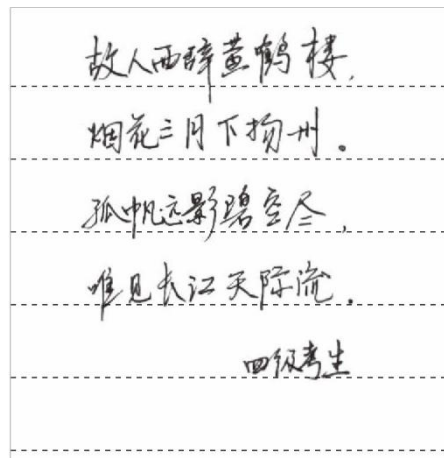 故人西辞黄鹤楼,
烟花三月下扬州。
孤帆远影碧空尽,
唯见长江天际流.
四级考生